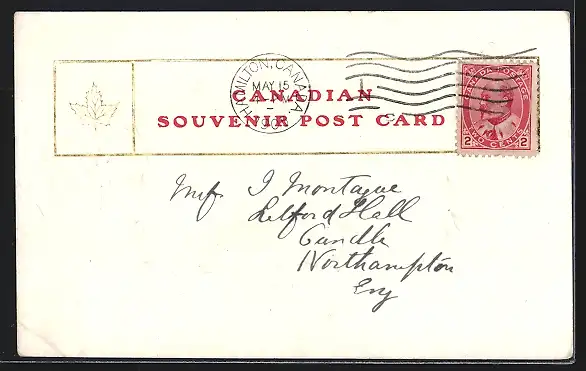 HAMILTON, CANADA
MAY 15
CANADIAN
SOUVENIR POST CARD
CANADA POSTAGE
2 TWO CENTS 2
I Montague
Lilford Hall
Oundle
Northampton
Eng